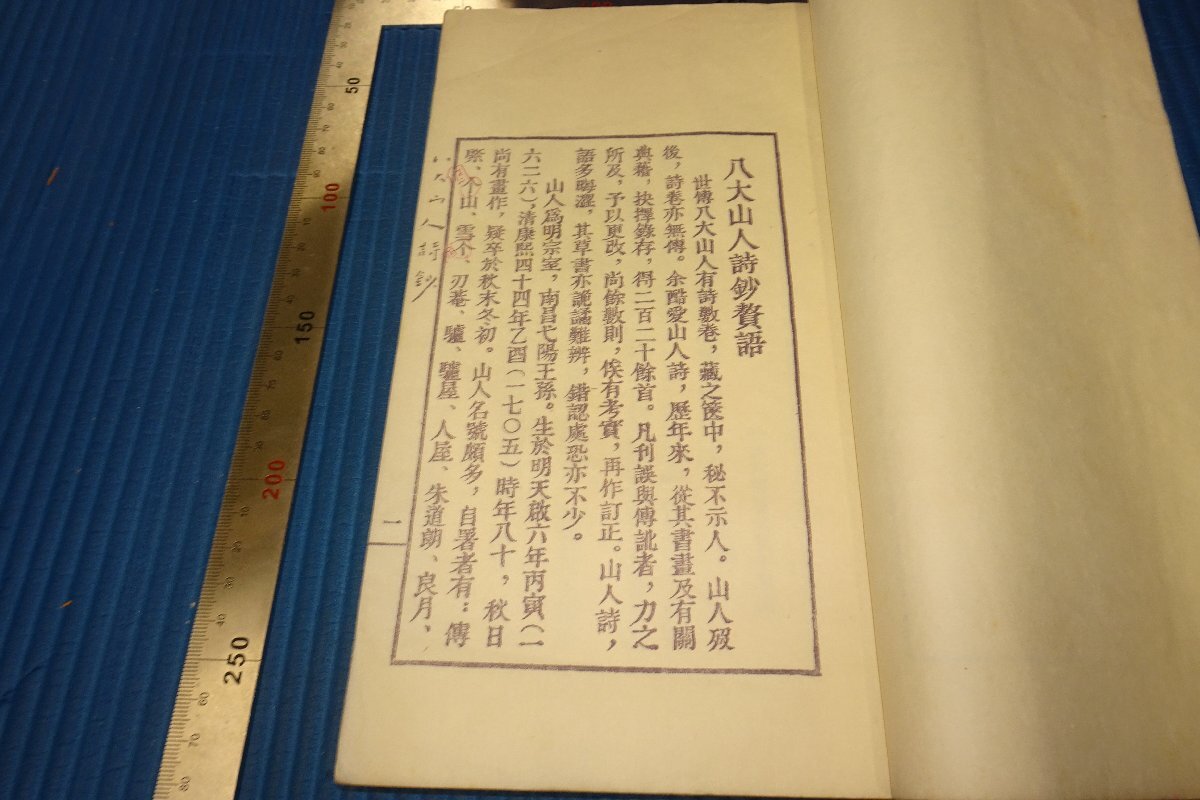 八大山人詩鈔贅語
世傳八大山人有詩數卷，藏之篋中，秘不示人。山人歿
後，詩卷亦無傳。余酷愛山人詩，歷年來，從其書畫及有關
典籍，抉擇錄存，得二百二十餘首。凡刊誤與傳訛者，力之
所及，予以更改，尚餘數則，俟有考實，再作訂正。山人詩，
語多晦澀，其草書亦詭譎難辨，錯認處恐亦不少。
山人爲明宗室，南昌弋陽王孫。生於明天啟六年丙寅（一
六二六），清康熙四十四年乙酉（一七〇五）時年八十，秋日
尚有畫作，疑卒於秋末冬初。山人名號頗多，自署者有：傳
綮、个山、雪个、刃菴、驢、驢屋、人屋、朱道朗、良月、
八大山人詩鈔
一
50
100
150
200
250